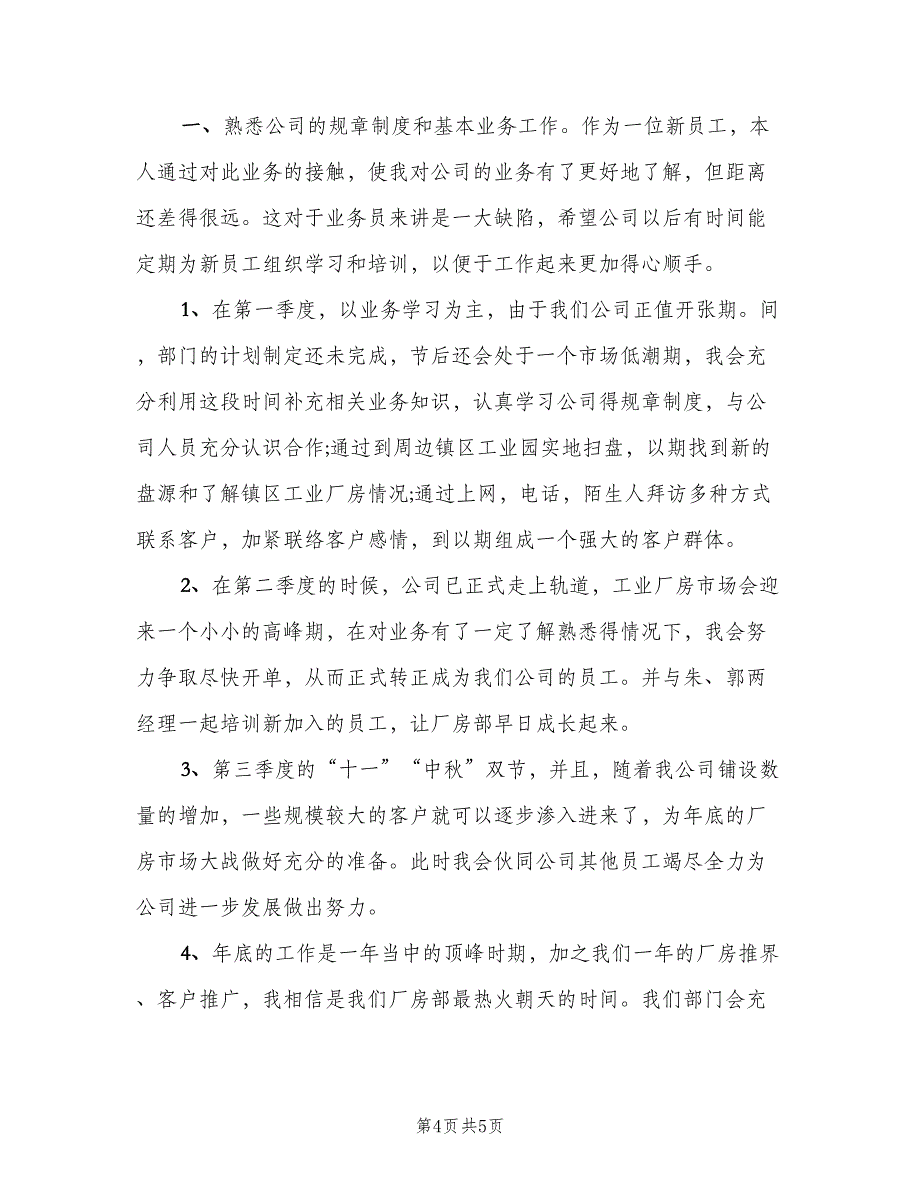 一、熟悉公司的规章制度和基本业务工作。作为一位新员工，本
人通过对此业务的接触，使我对公司的业务有了更好地了解，但距离
还差得很远。这对于业务员来讲是一大缺陷，希望公司以后有时间能
定期为新员工组织学习和培训，以便于工作起来更加得心顺手。
1、在第一季度，以业务学习为主，由于我们公司正值开张期。间
，部门的计划制定还未完成，节后还会处于一个市场低潮期，我会充
分利用这段时间补充相关业务知识，认真学习公司得规章制度，与公
司人员充分认识合作;通过到周边镇区工业园实地扫盘，以期找到新的
盘源和了解镇区工业厂房情况;通过上网，电话，陌生人拜访多种方式
联系客户，加紧联络客户感情，到以期组成一个强大的客户群体。
2、在第二季度的时候，公司已正式走上轨道，工业厂房市场会迎
来一个小小的高峰期，在对业务有了一定了解熟悉得情况下，我会努
力争取尽快开单，从而正式转正成为我们公司的员工。并与朱、郭两
经理一起培训新加入的员工，让厂房部早日成长起来。
3、第三季度的“十一”“中秋”双节，并且，随着我公司铺设数
量的增加，一些规模较大的客户就可以逐步渗入进来了，为年底的厂
房市场大战做好充分的准备。此时我会伙同公司其他员工竭尽全力为
公司进一步发展做出努力。
4、年底的工作是一年当中的顶峰时期，加之我们一年的厂房推界
、客户推广，我相信是我们厂房部最热火朝天的时间。我们部门会充
第4页 共5页